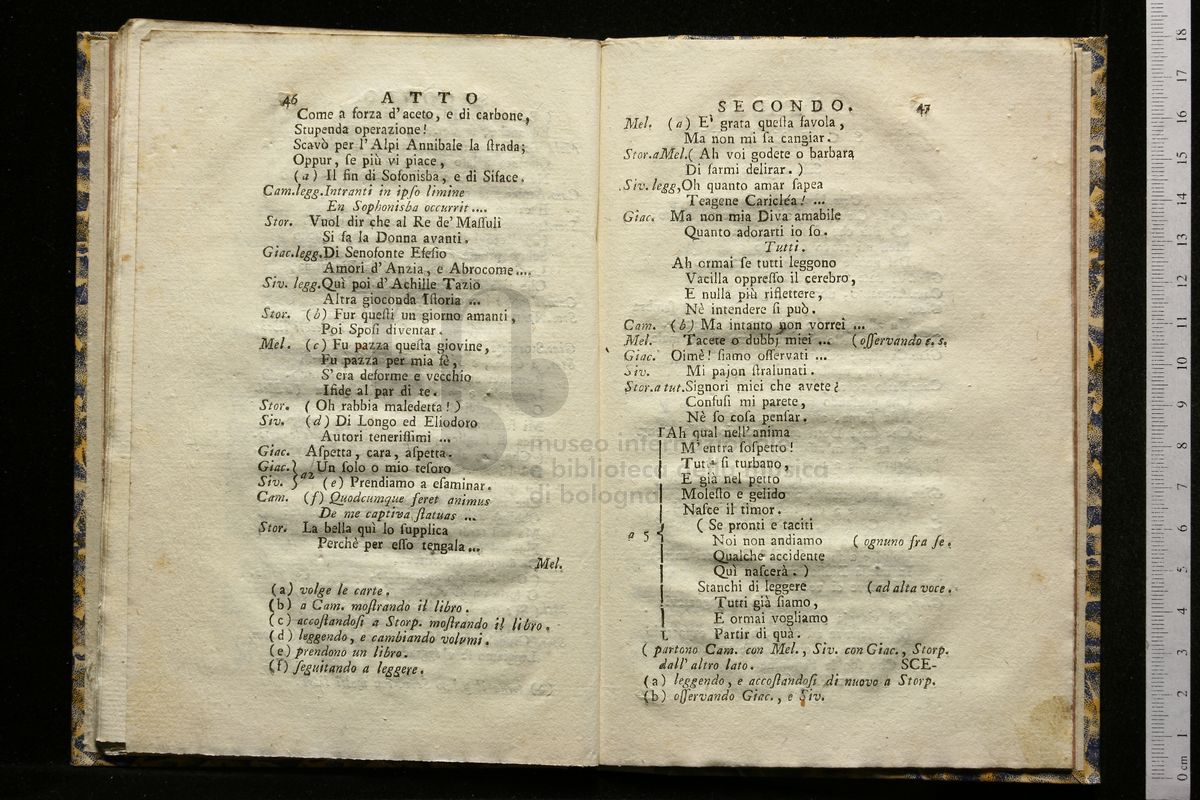 46 ATTO
Come a forza d'aceto, e di carbone,
Stupenda operazione!
Scavò per l'Alpi Annibale la ſtrada;
Oppur, ſe più vi piace,
(a) Il fin di Sofonisba, e di Siface.
Cam.legg.Intranti in ipſo limine
En Sophonisba occurrit ....
Stor. Vuol dir che al Re de' Maſſuli
Si fa la Donna avanti.
Giac.legg.Di Senofonte Efeſio
Amori d'Anzia, e Abrocome....
Siv. legg.Quì poi d'Achille Tazio
Altra gioconda Iſtoria ...
Stor. (b) Fur queſti un giorno amanti,
Poi Spoſi diventar.
Mel. (c) Fu pazza queſta giovine,
Fu pazza per mia fè,
S'era deforme e vecchio
Ifide al par di te.
Stor. (Oh rabbia maledetta!)
Siv. (d) Di Longo ed Eliodoro
Autori teneriſſimi ...
Giac. Aſpetta, cara, aſpetta.
Giac. } a2 Un ſolo o mio teſoro
Siv. } (e) Prendiamo a eſaminar.
Cam. (f) Quodcumque feret animus
De me captiva ſtatuas ...
Stor. La bella quì lo ſupplica
Perchè per eſſo tengala...
Mel.
(a) volge le carte.
(b) a Cam. moſtrando il libro.
(c) accoſtandoſi a Storp. moſtrando il libro.
(d) leggendo, e cambiando volumi.
(e) prendono un libro.
(f) ſeguitando a leggere.
SECONDO. 47
Mel. (a) E' grata queſta favola,
Ma non mi fa cangiar.
Stor.aMel.( Ah voi godete o barbara
Di farmi delirar. )
Siv. legg,Oh quanto amar ſapea
Teagene Caricléa! ...
Giac. Ma non mia Diva amabile
Quanto adorarti io ſo.
Tutti.
Ah ormai ſe tutti leggono
Vacilla oppreſſo il cerebro,
E nulla più riflettere,
Nè intendere ſi può.
Cam. (b) Ma intanto non vorrei ...
Mel. Tacete o dubbj miei ... (oſſervando e. s.
Giac. Oimè! ſiamo oſſervati ...
Siv. Mi pajon ſtralunati.
Stor.a tut.Signori miei che avete?
Confuſi mi parete,
Nè ſo coſa penſar.
Ah qual nell'anima
M'entra ſoſpetto!
Tutti ſi turbano,
E già nel petto
Moleſto e gelido
Naſce il timor.
( Se pronti e taciti
a 5 { Noi non andiamo ( ognuno fra ſe.
Qualche accidente
Quì naſcerà. )
Stanchi di leggere (ad alta voce.
Tutti già ſiamo,
E ormai vogliamo
Partir di quà.
( partono Cam. con Mel., Siv. con Giac., Storp.
dall'altro lato. SCE-
(a) leggendo, e accoſtandoſi di nuovo a Storp.
(b) oſſervando Giac., e Siv.
museo internazionale
e biblioteca della musica
di bologna
18
17
16
15
14
13
12
11
10
9
8
7
6
5
4
3
2
1
0 cm